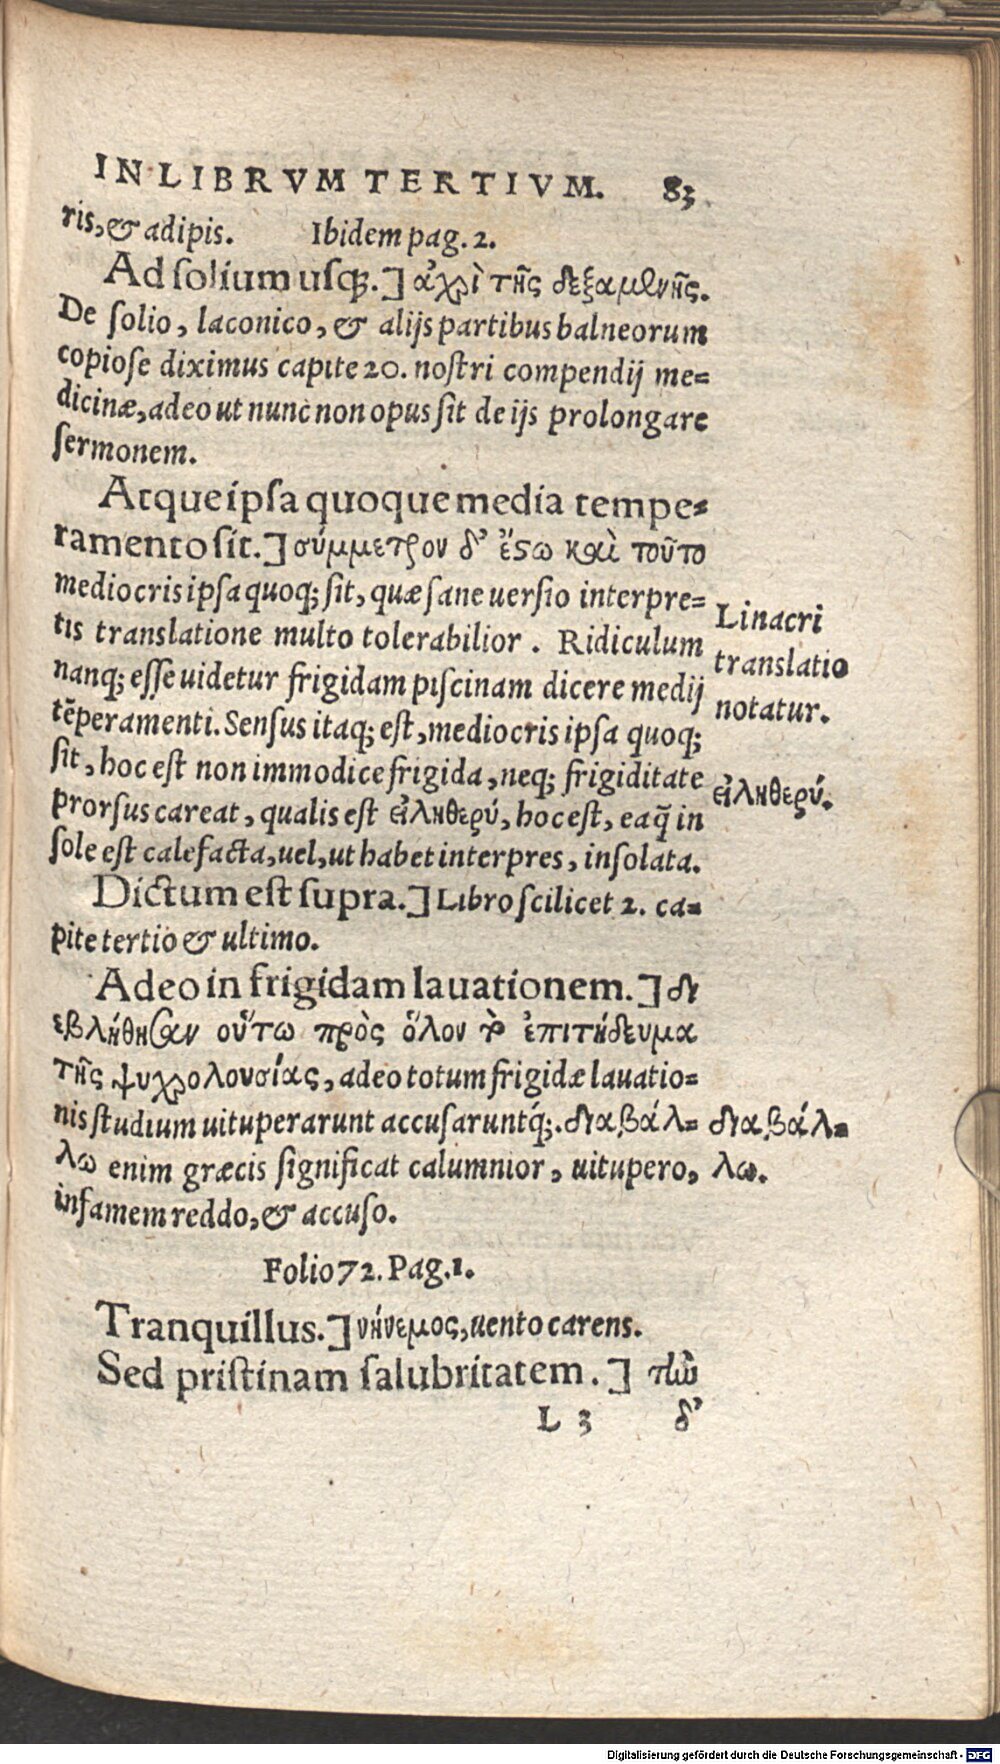 IN LIBRVM TERTIVM. 83
ris, & adipis. Ibidem pag. 2.
Ad solium usq;.] ἀχρὶ τῆς δεξαμενῆς.
De solio, laconico, & alijs partibus balneorum
copiose diximus capite 20. nostri compendij me=
dicinæ, adeo ut nunc non opus sit de ijs prolongare
sermonem.
Atque ipsa quoque media tempe=
ramento sit.] σύμμετρον δ’ ἔστω καὶ τοῦτο
mediocris ipsa quoq; sit, quæ sane uersio interpre=
tis translatione multo tolerabilior. Ridiculum
nanq; esse uidetur frigidam piscinam dicere medij
tẽperamenti. Sensus itaq; est, mediocris ipsa quoq;
sit, hoc est non immodice frigida, neq; frigiditate
prorsus careat, qualis est εἰληθερύ, hoc est, ea q̃ in
sole est calefacta, uel, ut habet interpres, insolata.
Linacri
translatio
notatur.
εἰληθερύ.
Dictum est supra.] Libro scilicet 2. ca=
pite tertio & ultimo.
Adeo in frigidam lauationem.] δι
εβλήθησαν οὕτω πρὸς ὅλον τὸ ἐπιτήδευμα
τῆς ψυχρολουσίας, adeo totum frigidæ lauatio=
nis studium uituperarunt accusaruntq́;. διαβάλ=
λω enim græcis significat calumnior, uitupero,
infamem reddo, & accuso.
διαβάλ=
λω.
Folio 72. Pag. 1.
Tranquillus.] νήνεμος, uento carens.
Sed pristinam salubritatem.] τὼ
L 3 δ’
Digitalisierung gefördert durch die Deutsche Forschungsgemeinschaft - DFG